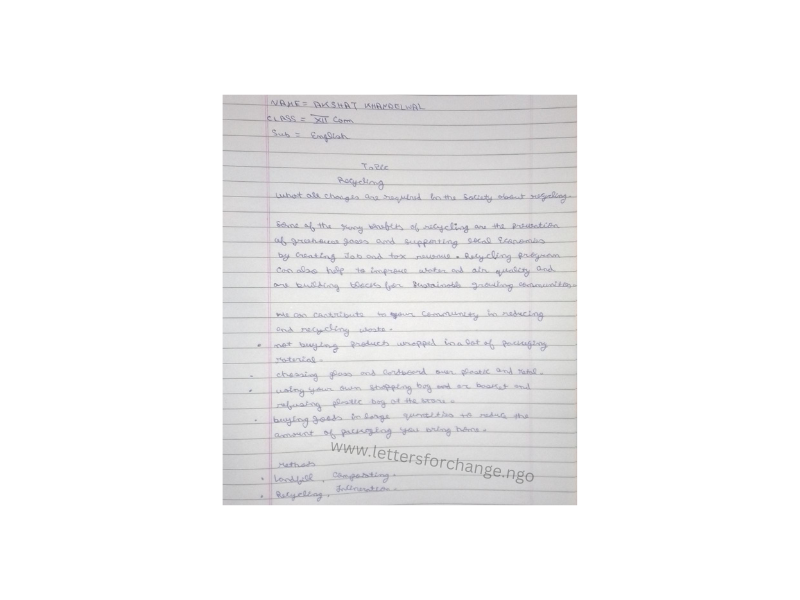 NAME = AKSHAT KHANDELWAL
CLASS = XII Com
Sub = English
Topic
Recycling
What all changes are required in the Society about recycling.
Some of the many benefits of recycling are the prevention
of greenhouse gases and supporting local Economies
by creating Job and tax revenue. Recycling program
Can also help to improve water and air quality and
are building blocks for Sustainable growing communities.
We can contribute to your Community in reducing
and recycling waste.
• not buying products wrapped in a lot of packaging
material.
• choosing glass and cardboard over plastic and metal.
• using your own shopping bag and or basket and
refusing plastic bag at the store.
• buying goods in large quantities to reduce the
amount of packaging you bring home.
www.lettersforchange.ngo
Methods
• Landfill, Composting.
• Recycling, Incineration.